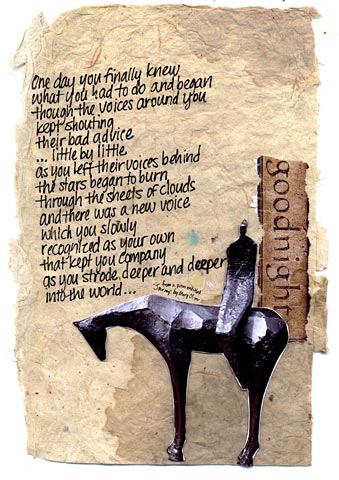 One day you finally knew
what you had to do and began
though the voices around you
kept shouting
their bad advice
... little by little
as you left their voices behind
the stars began to burn
through the sheets of clouds
and there was a new voice
which you slowly
recognized as your own
that kept you company
as you strode deeper and deeper
into the world...
from a poem entitled
"Journey" by Mary Oliver
goodnight